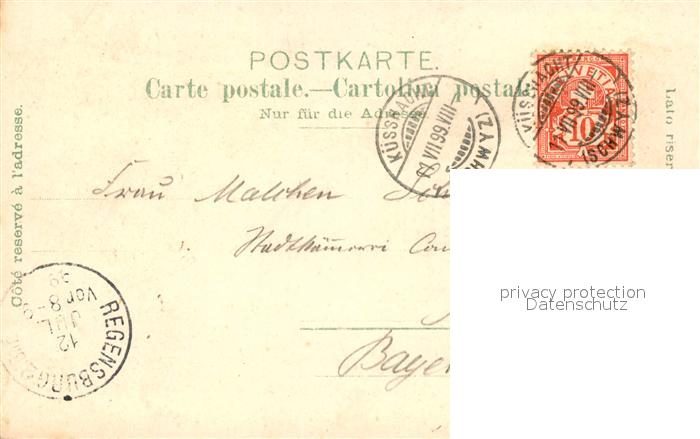 POSTKARTE.
Carte postale.—Cartolina postale
Nur für die Adresse.
Côté reservé à l'adresse.
Lato riser
KÜSSNACHT
VII.99.VIII-
(SCHWYZ)
HELVETIA
10
Frau Malchen
Stadtkämmerei
Baye
REGENSBURG
12
JUL.
Vor 8-
99
privacy protection
Datenschutz